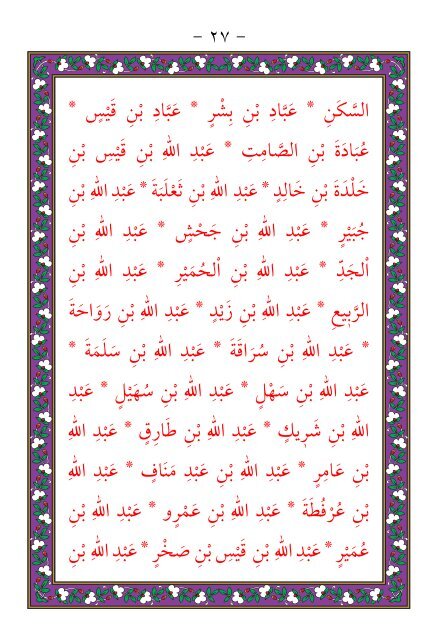 – ٢٧ –
السَّكَنِ * عَبَّادِ بْنِ بِشْرٍ * عَبَّادِ بْنِ قَيْسٍ *
عُبَادَةَ بْنِ الصَّامِتِ * عَبْدِ اللهِ بْنِ قَيْسِ بْنِ
خَلْدَةَ بْنِ خَالِدٍ * عَبْدِ اللهِ بْنِ ثَعْلَبَةَ * عَبْدِ اللهِ بْنِ
جُبَيْرٍ * عَبْدِ اللهِ بْنِ جَحْشٍ * عَبْدِ اللهِ بْنِ
اْلجَدِّ * عَبْدِ اللهِ بْنِ اْلحُمَيْرِ * عَبْدِ اللهِ بْنِ
الرَّبِيعِ * عَبْدِ اللهِ بْنِ زَيْدٍ * عَبْدِ اللهِ بْنِ رَوَاحَةَ
* عَبْدِ اللهِ بْنِ سُرَاقَةَ * عَبْدِ اللهِ بْنِ سَلَمَةَ *
عَبْدِ اللهِ بْنِ سَهْلٍ * عَبْدِ اللهِ بْنِ سُهَيْلٍ * عَبْدِ
اللهِ بْنِ شَرِيكٍ * عَبْدِ اللهِ بْنِ طَارِقٍ * عَبْدِ اللهِ
بْنِ عَامِرٍ * عَبْدِ اللهِ بْنِ عَبْدِ مَنَافٍ * عَبْدِ اللهِ
بْنِ عُرْفُطَةَ * عَبْدِ اللهِ بْنِ عَمْرٍو * عَبْدِ اللهِ بْنِ
عُمَيْرٍ * عَبْدِ اللهِ بْنِ قَيْسِ بْنِ صَخْرٍ * عَبْدِ اللهِ بْنِ